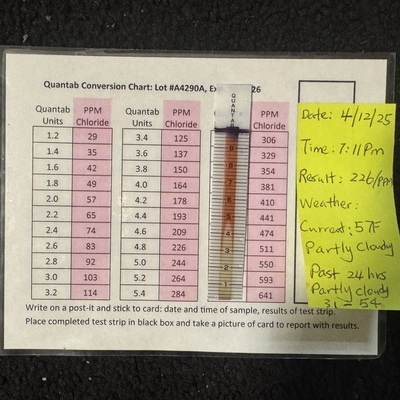 Quantab Conversion Chart: Lot #A4290A, Ex 26
Quantab Units PPM Chloride Quantab Units PPM Chloride PPM Chloride
1.2 29 3.4 125 306
1.4 35 3.6 137 329
1.6 42 3.8 150 354
1.8 49 4.0 164 381
2.0 57 4.2 178 410
2.2 65 4.4 193 441
2.4 74 4.6 209 474
2.6 83 4.8 226 511
2.8 92 5.0 244 550
3.0 103 5.2 264 593
3.2 114 5.4 284 641
QUANTAB
9
8
7
6
5
4
3
2
1
Write on a post-it and stick to card: date and time of sample, results of test strip.
Place completed test strip in black box and take a picture of card to report with results.
Date: 4/12/25
Time: 7:11pm
Result: 226/PPM
Weather:
Current: 57F
Partly Cloudy
Past 24 hrs
Partly Cloudy
31 - 54